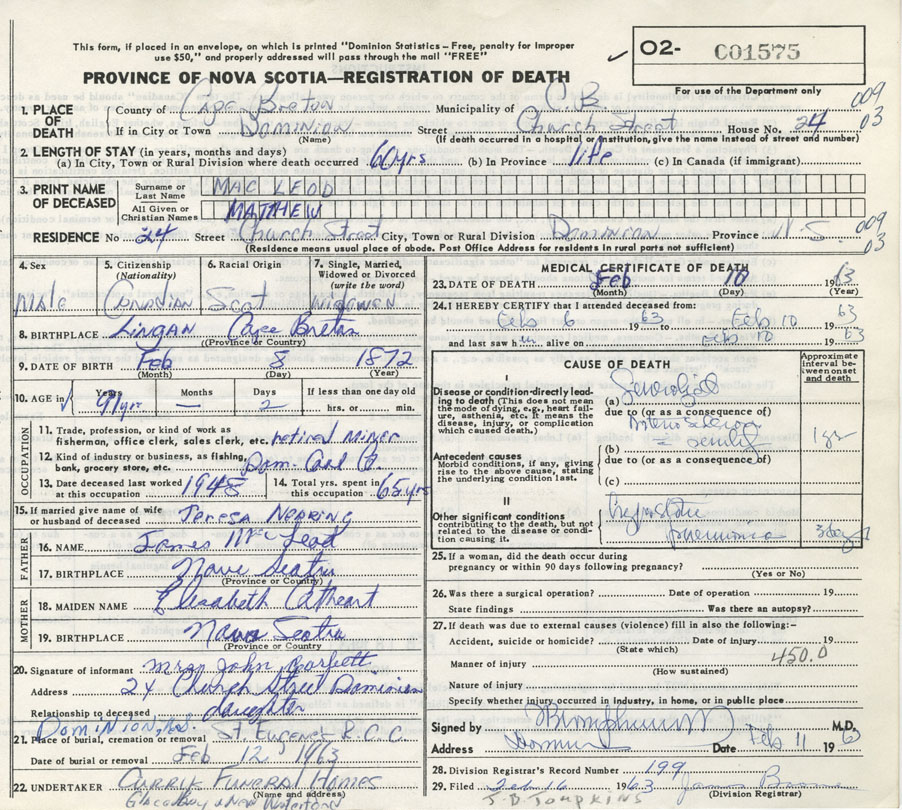 This form, if placed in an envelope, on which is printed "Dominion Statistics – Free, penalty for Improper
use $50," and properly addressed will pass through the mail "FREE"
O2- C01575
PROVINCE OF NOVA SCOTIA—REGISTRATION OF DEATH
For use of the Department only
1. PLACE OF DEATH County of Cape Breton Municipality of C.B. 009
If in City or Town Dominion Street Church Street House No. 24 03
(Name) (If death occurred in a hospital or institution, give the name instead of street and number)
2. LENGTH OF STAY (in years, months and days)
(a) In City, Town or Rural Division where death occurred 60 yrs (b) In Province life (c) In Canada (if immigrant)
3. PRINT NAME OF DECEASED
Surname or Last Name MAC LEOD
All Given or Christian Names MATTHEW
RESIDENCE No 24 Street Church Street City, Town or Rural Division Dominion Province N.S. 009
03
(Residence means usual place of abode. Post Office Address for residents in rural parts not sufficient)
4. Sex Male
5. Citizenship (Nationality) Canadian
6. Racial Origin Scot
7. Single, Married, Widowed or Divorced (write the word)
8. BIRTHPLACE Lingan Cape Breton
(Province or Country)
9. DATE OF BIRTH Feb 8 1872
(Month) (Day) (Year)
10. AGE in Years 91 yr Months — Days 2 If less than one day old hrs. or min.
OCCUPATION
11. Trade, profession, or kind of work as
fisherman, office clerk, sales clerk, etc. retired miner
12. Kind of industry or business, as fishing,
bank, grocery store, etc. Dom. Coal
13. Date deceased last worked
at this occupation 1948
14. Total yrs. spent in
this occupation 65 yrs
15. If married give name of wife
or husband of deceased Teresa Nearing
FATHER
16. NAME James Mc Leod
17. BIRTHPLACE Nova Scotia
(Province or Country)
MOTHER
18. MAIDEN NAME Elizabeth Cathcart
19. BIRTHPLACE Nova Scotia
(Province or Country
20. Signature of informant John
Address 24 Church Street Dominion
Relationship to deceased daughter
Dominion, N.S.
21. Place of burial, cremation or removal St Eugene R.C.C.
Date of burial or removal Feb 12 1963
22. UNDERTAKER Curry Funeral Homes
(Name and address)
Glace Bay & New Waterford
MEDICAL CERTIFICATE OF DEATH
23. DATE OF DEATH Feb 10 1963
(Month) (Day) (Year)
24. I HEREBY CERTIFY that I attended deceased from:
Feb 6 1963 to Feb 10 1963
and last saw him alive on Feb 10 1963
CAUSE OF DEATH
Approximate interval between onset and death
I
Disease or condition directly leading to death (This does not mean the mode of dying, e.g., heart failure, asthenia, etc. It means the disease, injury, or complication which caused death.)
(a)
due to (or as a consequence of)
Antecedent causes
Morbid conditions, if any, giving rise to the above cause, stating the underlying condition last.
(b) senility
due to (or as a consequence of)
(c)
II
Other significant conditions
contributing to the death, but not related to the disease or condition causing it.
Hypostatic
pneumonia 3 days
25. If a woman, did the death occur during
pregnancy or within 90 days following pregnancy?
(Yes or No)
26. Was there a surgical operation? Date of operation 19
State findings Was there an autopsy?
27. If death was due to external causes (violence) fill in also the following:–
Accident, suicide or homicide? Date of injury 19
(State which)
450.0
Manner of injury
(How sustained)
Nature of injury
Specify whether injury occurred in industry, in home, or in public place
Signed by M.D.
Address Dominion Date Feb 11 1963
28. Division Registrar's Record Number 199
29. Filed Feb 16 1963 James
J.B. Tompkins (Division Registrar)